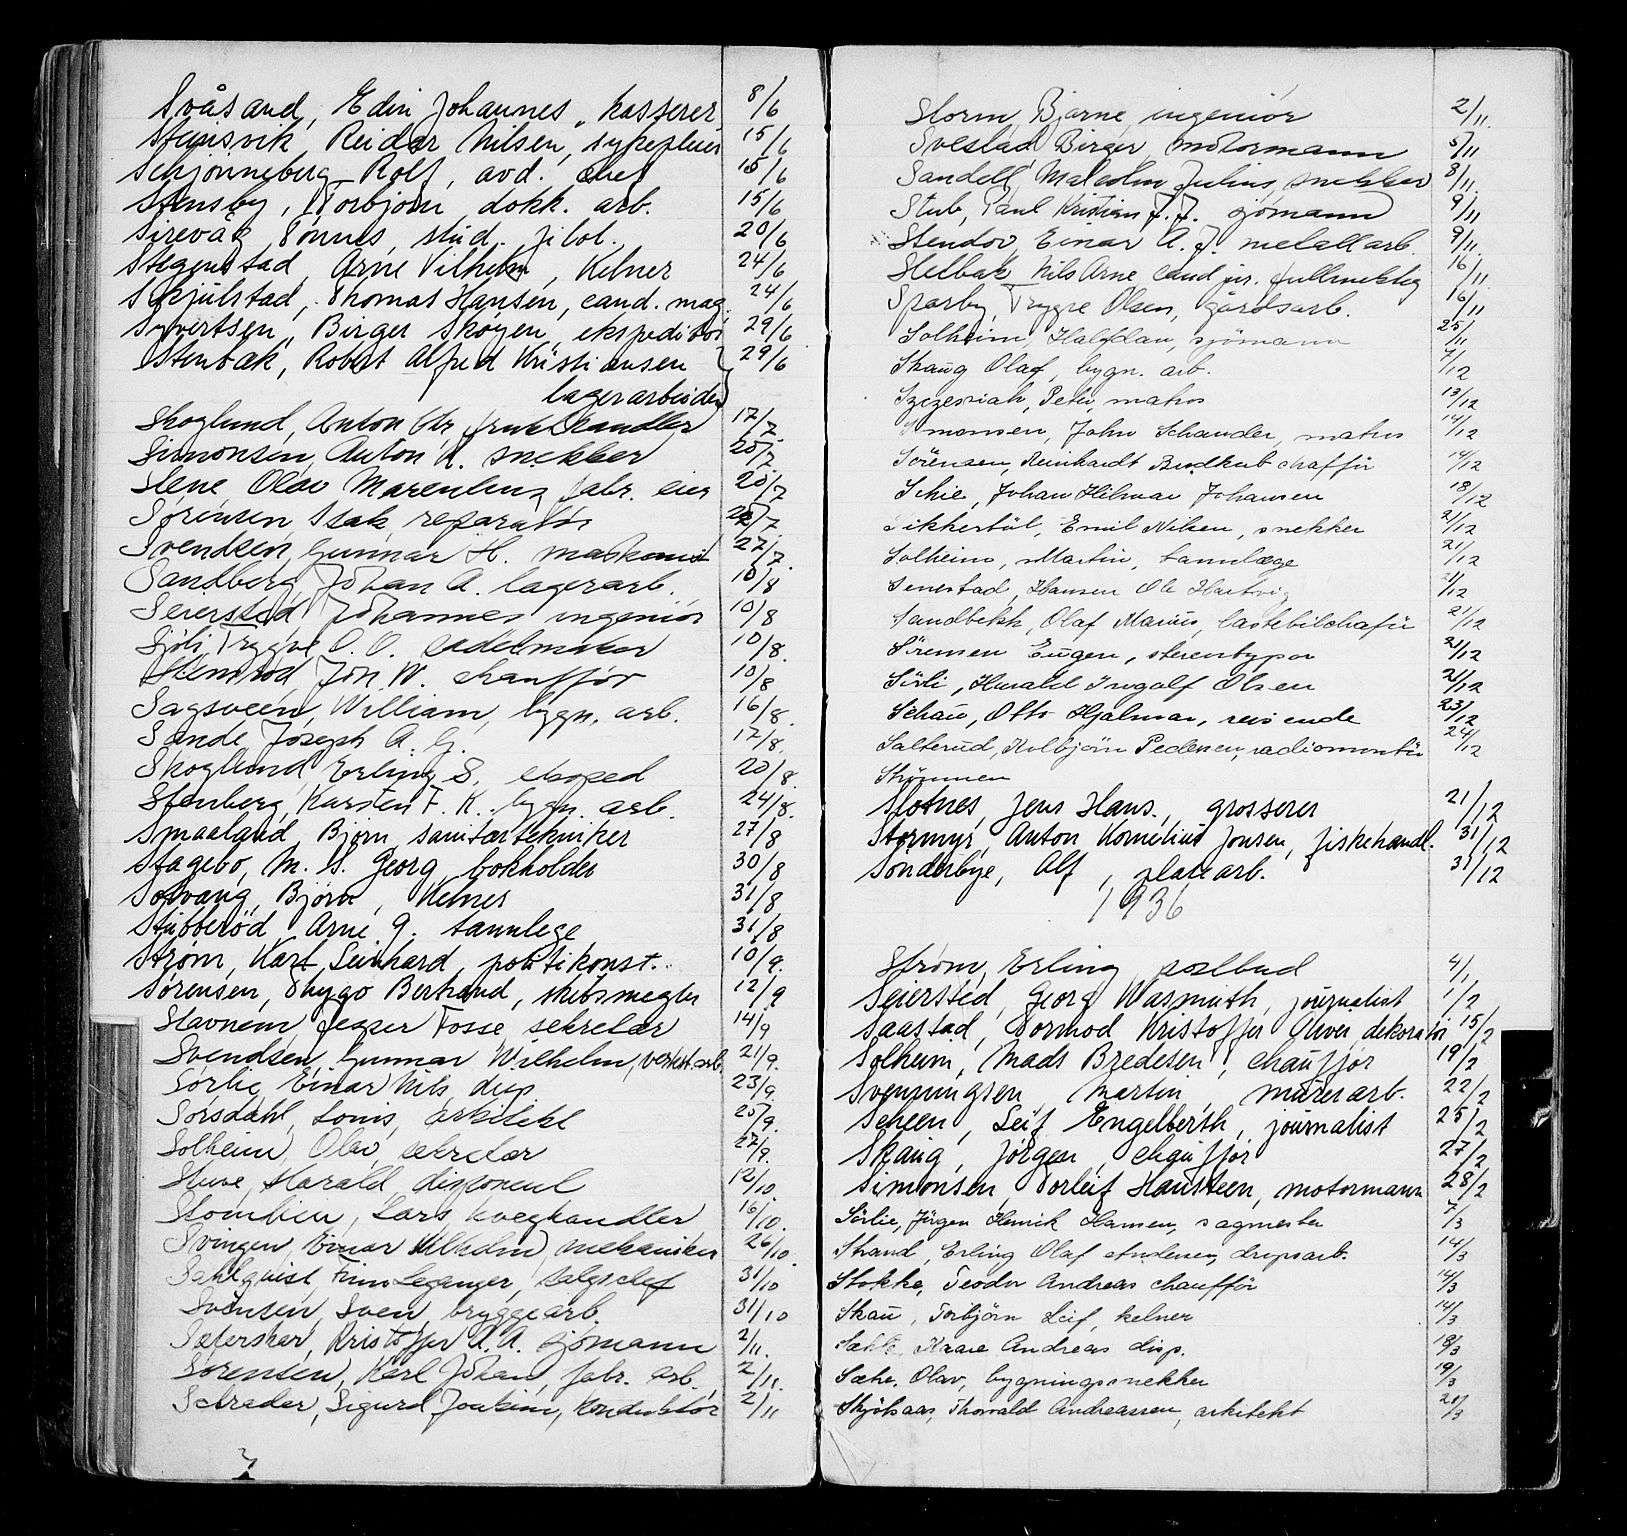 Svåsand, Edin Johannes, kasserer 8/6
Steinsvik, Reidar Nilsen, sykepleier 15/6
Schjønneberg Rolf, avd. chef 15/6
Stensby, Torbjørn, dokk. arb. 15/6
Sirevåg, Tønnes, stud. filol. 20/6
Stegenstad, Arne Vilhelm, Kelner 24/6
Skjulstad, Thomas Hansen, cand. mag. 24/6
Syvertsen, Birger Skøyen, ekspeditør 29/6
Stenbæk, Robert Alfred Kristiansen 29/6
lagerarbeider
Skoglund, Anton Chr. frukthandler 17/7
Simonsen, Anton K. snekker 25/7
Slene, Olav Marentius fabr. eier 20/7
Sørensen Isak, reparatør /7
Svendsen, Gunnar H. maskinist 27/7
Sandberg, Johan A. lagerarb. 10/8
Seiersted Johannes ingeniør 10/8
Sjøli, Trygve O. O. sadelmaker 10/8
Stemrod Jon W. chauffør 10/8
Sagsveen, William, bygn. arb. 16/8
Sande Joseph A. G. 17/8
Skoglund Erling S. eksped 20/8
Stenberg, Karsten F. K. bygn. arb. 24/8
Smaaland, Bjørn sanitærtekniker 27/8
Stagebo, M. S. Georg, bokholder 30/8
Solvang, Bjørn, Kelner 31/8
Stubberöd Arne G. tannlege 31/8
Strøm, Karl Leinhard, politikonst. 10/9
Sørensen, Thygo Bertrand, skibsmegler 12/9
Slavnem, Jesper Fosse, sekretær 14/9
Svendsen, Gunnar Wilhelm, verkst. arb. 21/9
Sørlie, Einar Nils, disp 23/9
Sørsdahl, Louis, arkitekt 25/9
Solheim, Olav, sekretær 27/9
Stuve, Harald disponent 12/10
Slomlien, Lars, kveghandler 16/10
Svingen, Einar Vilhelm, mekaniker 26/10
Sahlquist, Finn Leganger, salgschef 31/10
Svensen, Sven, bryggearb. 31/10
Sæterskar, Kristoffer A. A. sjømann 2/11
Sørensen, Karl Johan, fabr. arb. 2/11
Schrader, Sigurd Joakim, Konduktør 2/11
Storm, Bjarne, ingeniør 2/11
Svestad Birger, motormann 5/11
Sandell, Malcolm Julius, snekker 8/11
Stub, Paul Kristian F. F. sjømann 9/11
Stendov, Einar A. J. metallarb. 9/11
Stelbak Nils Arne cand jur. fullmektig 16/11
Sparby, Trygve Olsen, Gårdsarb. 16/11
Solheim, Halfdan, sjömann 25/11
Skaug Olaf, bygn. arb. 4/12
Szczesniak, Peter, matros 13/12
Simonsen, John Schander, matros 14/12
Sörensen, Reinhardt Rudkub chaffür 14/12
Schie, Johan Hilmar Johansen 18/12
Sikkerbül, Emil Nilsen, snekker 21/12
Solheim, Martin, tannlæge 21/12
Senestad, Hansen Ole Hartvig 21/12
Sandbekk, Olaf Marius, lastebilchafür 21/12
Sörensen Eugen, stereotypør 21/12
Sörli, Harald Ingolf Olsen 21/12
Schau, Otto Hjalmar, reisende 23/12
Salterud, Kolbjörn Pedersen, radiomontör 24/12
Strömmen
Slotnes, Jens Hans., grosserer 21/12
Stormyr, Anton Kornelius Jonsen, fiskehandl. 31/12
Sönderbye, Alf, platearb. 31/12
1936
Strøm, Erling, postbud 4/1
Seiersted, Georg Wasmuth, journalist 1/2
Saastad, Tormod Kristoffer Oliver, dekoratør 15/2
Solheim, Mads Bredesen, chauffør 19/2
Svenningsen, Martin, murerarb. 22/2
Scheen, Leif Engelberth, journalist 25/2
Skaug, Jörgen, chauffør 27/2
Simonsen, Torleif Hansteen, motormann 28/2
Sörlie, Jörgen Henrik Hansen, sagmester 7/3
Strand, Erling Olaf Andersen, drepsarb. 14/3
Stokke, Teodor Andreas chauffør 14/3
Skau, Torbjörn Leif, kelner 14/3
Sæhle Kaare Andreas disp. 18/3
Sæhe, Olav, bygningssnekker 19/3
Skjölsaas, Thorvald Andreassen, arkitekt 20/3